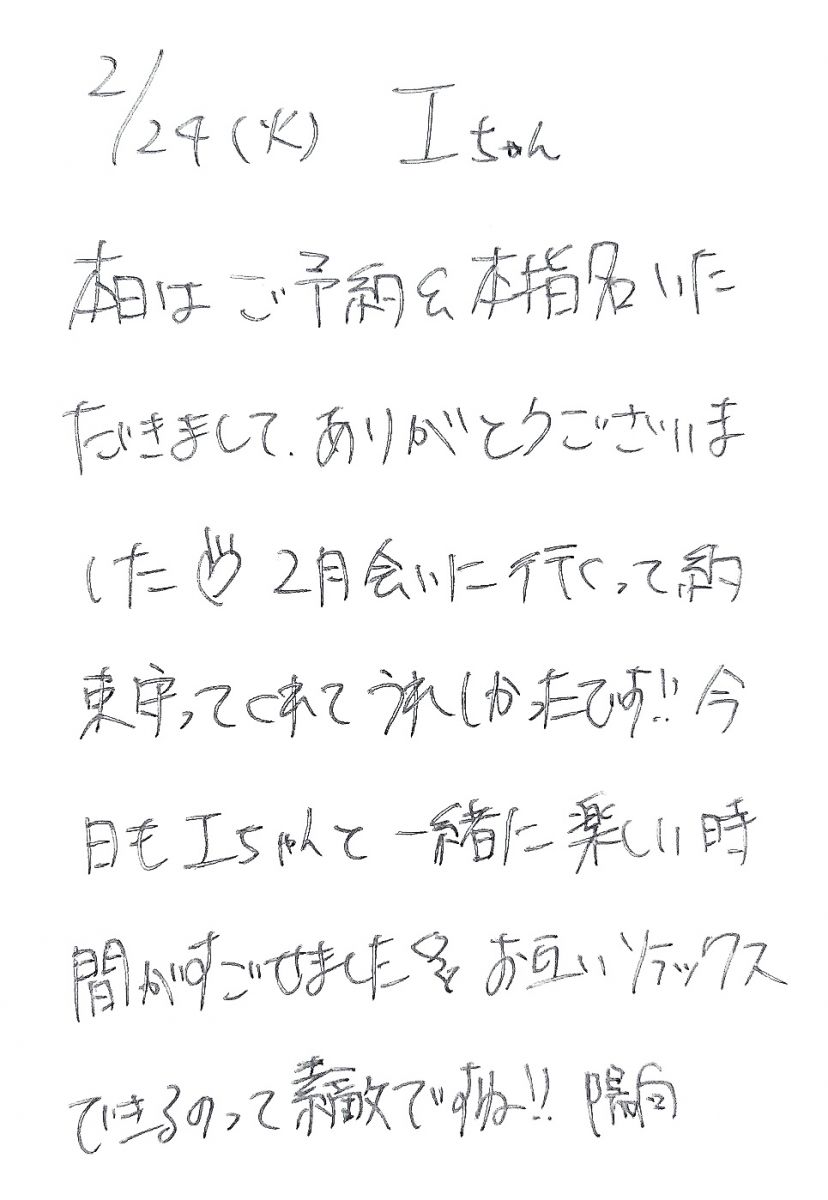 2/24(火) Iちゃん
本日はご予約&本指名いた
だきまして、ありがとうございま
した 2月会いに行くって約
束守ってくれてうれしかったです!!今
日もIちゃんと一緒に楽しい時
間がすごせました お互いリラックス
できるのって素敵ですね!! 陽向